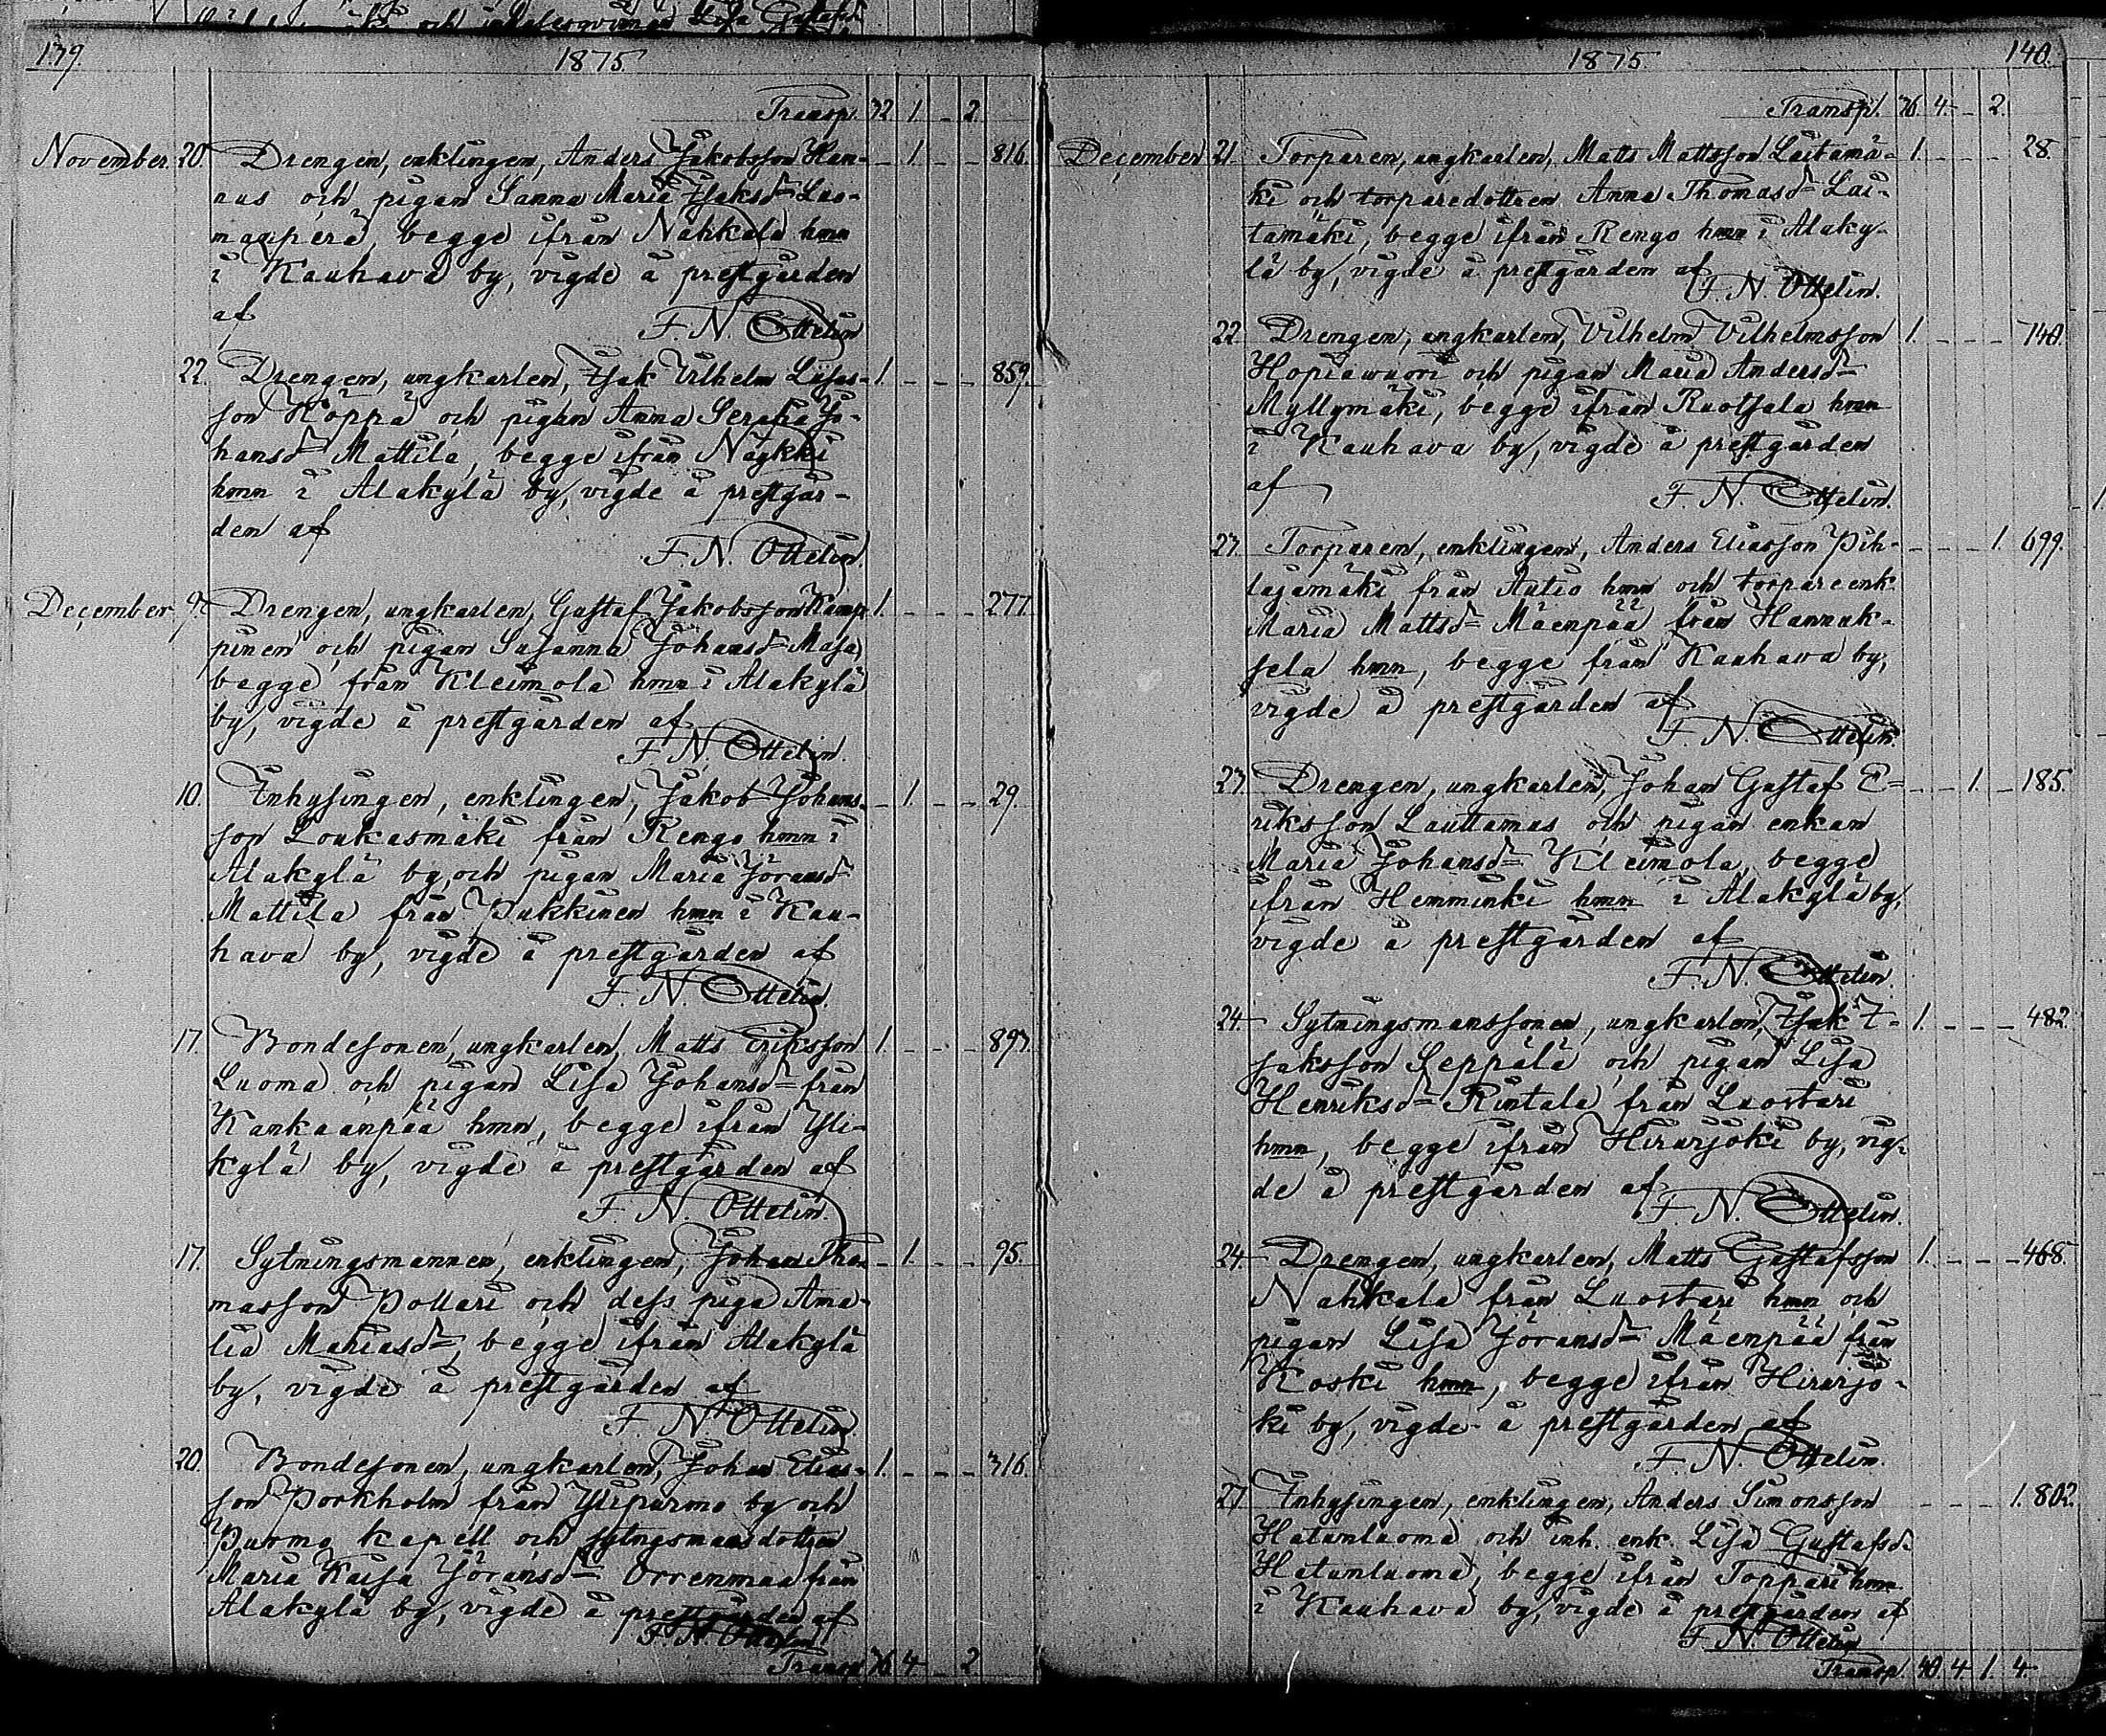 139.
1875.
Transp. 32 1. - 2.
November. 20. Drengen, enklingen, Anders Jakobsson Han- - 1. - - 816.
nus och pigan Sanna Maria Isaksd= Luo-
maaperä, begge ifrån Nahkala hmn
i Kauhava by, vigde å prestgården
af
F. N. Ottelin
22. Drengen, ungkarlen, Isak Vilhelm Lisas- 1. - - - 859.
son Köppä och pigan Anna Serafia Jo-
hansd= Mattila, begge ifrån Näykki
hmn i Alakylä by, vigde å prestgår-
den af
F. N. Ottelin.
December. 9. Drengen, ungkarlen, Gustaf Jakobsson Kamp- 1. - - - 277.
pinen och pigan Susanna Johansd= Masa
begge från Kleimola hmn i Alakylä
by, vigde å prestgården af
F. N. Ottelin.
10. Inhysingen, enklingen, Jakob Johans- - 1. - - 29.
son Loukasmäki från Rengo hmn i
Alakylä by, och pigan Maria Göransd=
Mattila från Pukkinen hmn i Kau-
hava by, vigde å prestgården af
F. N. Ottelin.
17. Bondesonen, ungkarlen, Matts Eriksson 1. - - - 893.
Luoma och pigan Lisa Johansd= från
Kankaanpää hmn, begge ifrån Yli-
kylä by, vigde å prestgården af
F. N. Ottelin.
17. Sytningsmannen, enklingen, Johan Tho- - 1. - - 95.
masson Pollari och dess piga Ama-
lia Mathiasd=, begge ifrån Alakylä
by, vigde å prestgården af
F. N. Ottelin.
20. Bondesonen, ungkarlen, Johan Elias- 1. - - - 316.
son Porkholm från Ylipurmo by och
Purmo kapell och sytngsmansdottren
Maria Kaisa Göransd= Orrenmaa från
Alakylä by, vigde å prestgården af
F. N. Ottelin
Transp 36 4 - 2
1875
140.
Transp. 36. 4 - 2.
December 21. Torparen, ungkarlen, Matts Mattsson Laitamä- 1. - - - 28.
ki och torparedottren Anna Thomasd= Lai-
tamäki, begge ifrån Rengo hmn i Alaky-
lä by, vigde å prestgården af
F. N. Ottelin.
22. Drengen, ungkarlen, Vilhelm Vilhelmsson 1. - - - 740.
Hopiawuori och pigan Maria Andersd=
Myllymäki, begge ifrån Ruotsala hmn
i Kauhava by, vigde å prestgården
af
F. N. Ottelin.
23. Torparen, enklingen, Anders Eliasson Pih- - - - 1. 699.
lajamäki från Autio hmn och torpareenk.
Maria Mattsd= Mäenpää från Hannuk-
sela hmn, begge från Kauhava by,
vigde å prestgården af
F. N. Ottelin.
23. Drengen, ungkarlen, Johan Gustaf E= - - 1. - 185.
riksson Lauttamus och pigan enkan
Maria Johansd= Kleimola, begge
ifrån Hemminki hmn i Alakylä by,
vigde å prestgården af
F. N. Ottelin.
24. Sytningsmanssonen, ungkarlen, Isak I- 1. - - - 482.
saksson Seppälä och pigan Lisa
Henriksd= Rintala från Luostari
hmn, begge ifrån Hirvijoki by, vig-
de å prestgården af
F. N. Ottelin.
24. Drengen, ungkarlen, Matts Gustafsson 1. - - - 468.
Nahkala från Luostari hmn och
pigan Lisa Göransd= Mäenpää från
Koski hmn, begge ifrån Hirvijo-
ki by, vigde å prestgården af
F. N. Ottelin.
27. Inhysingen, enklingen, Anders Simonsson - - - 1. 802.
Hatunluoma och inh. enk. Lisa Gustafsd=
Hatunluoma, begge ifrån Toppari hmn
i Kauhava by, vigde å prestgården af
F. N. Ottelin
Transp. 40. 4 1. 4.